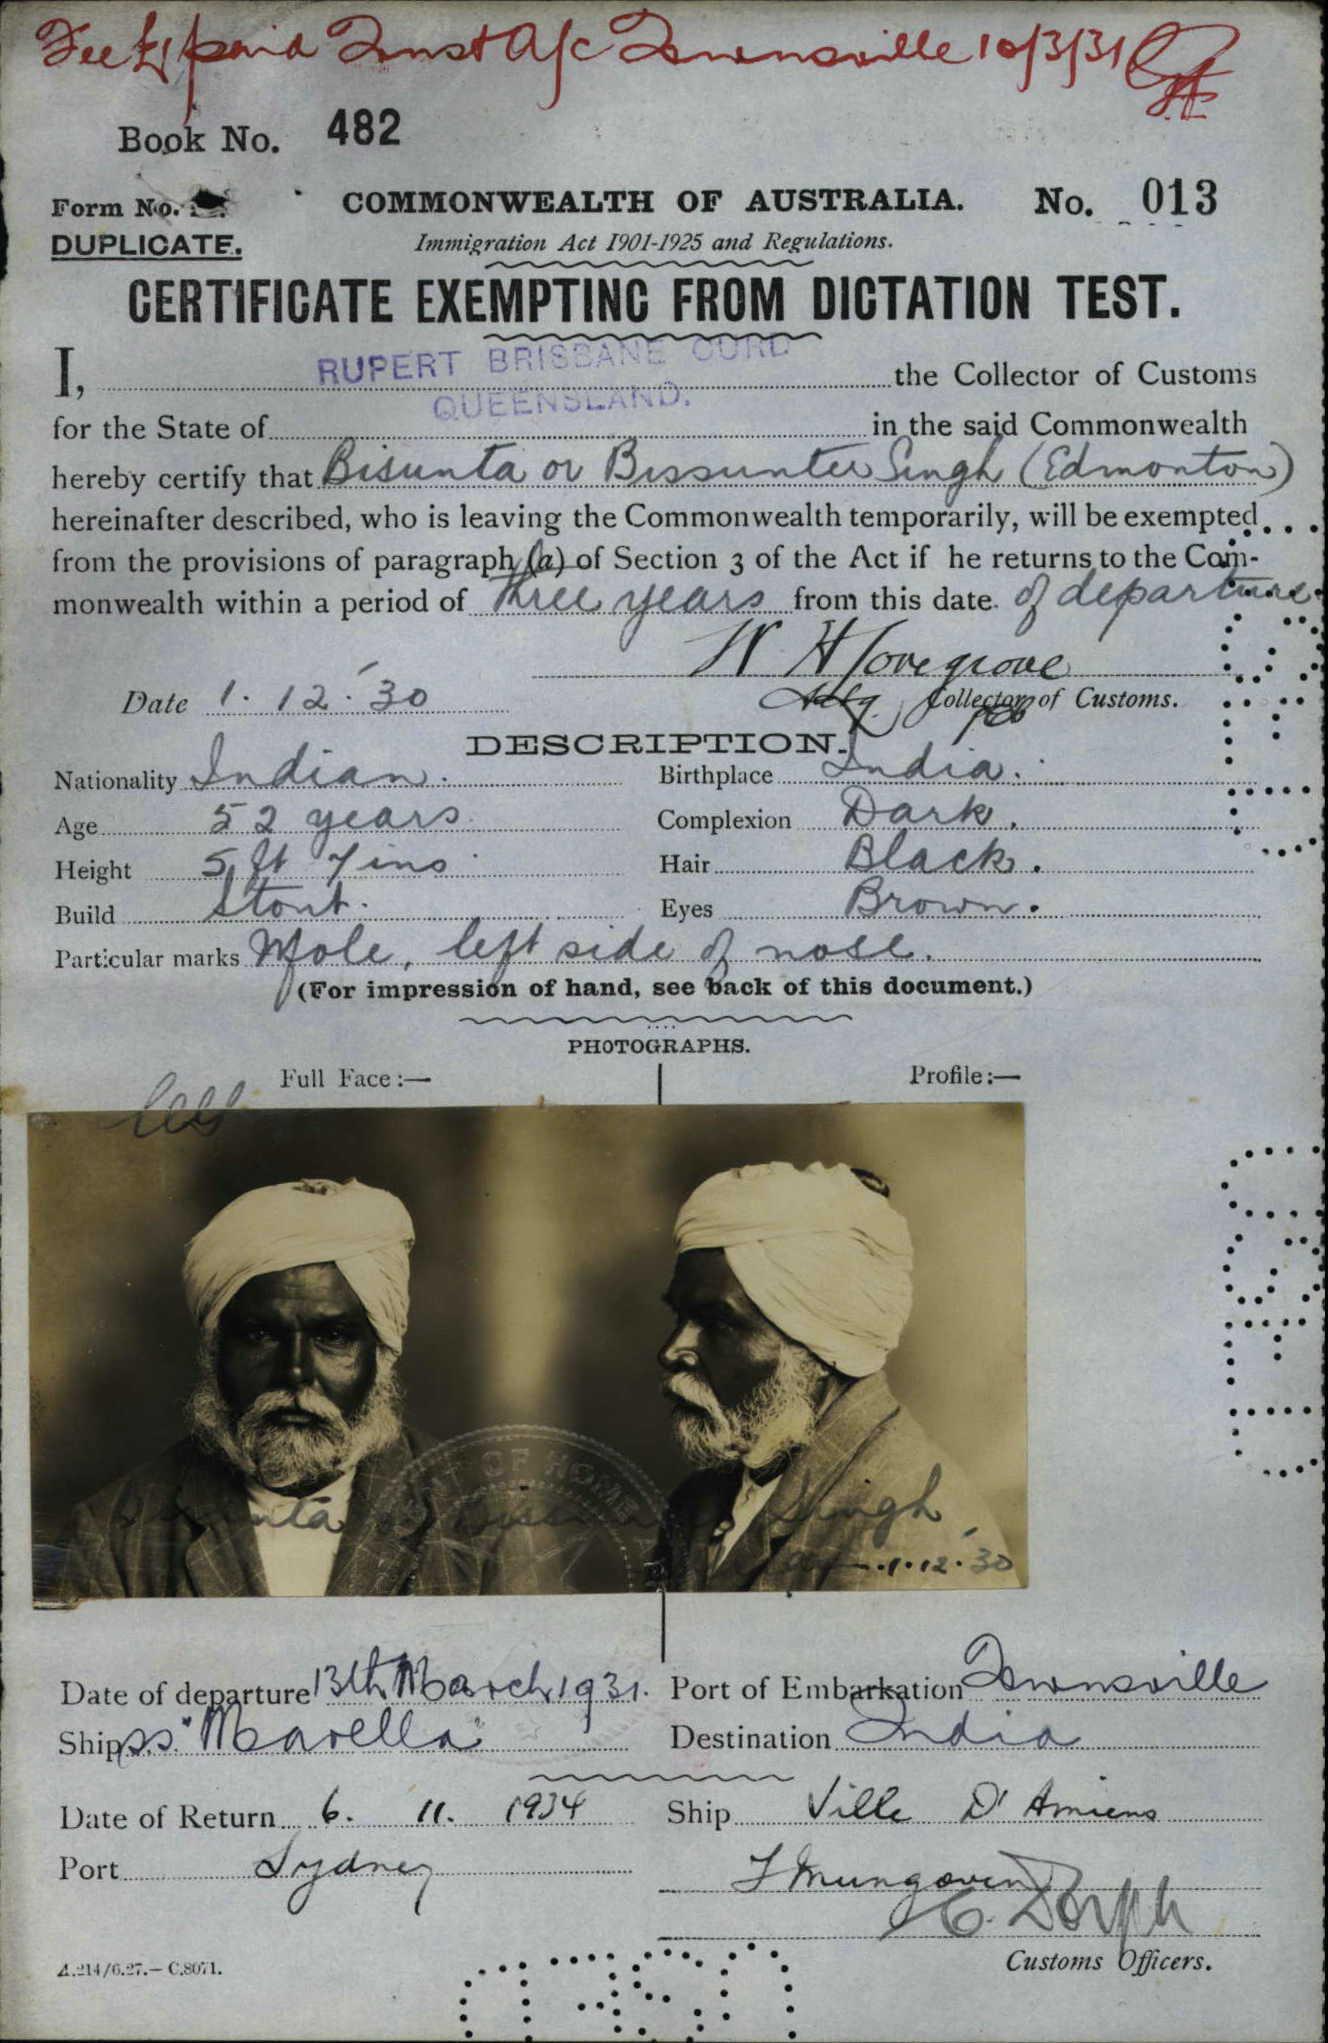 Fee £1 paid Trust A/c Townsville 10/3/31
Book No. 482
Form No.
COMMONWEALTH OF AUSTRALIA.
No. 013
DUPLICATE.
Immigration Act 1901-1925 and Regulations.
CERTIFICATE EXEMPTING FROM DICTATION TEST.
I, RUPERT BRISBANE CURD the Collector of Customs
for the State of QUEENSLAND. in the said Commonwealth
hereby certify that Bisunta or Bissunter Singh (Edmonton)
hereinafter described, who is leaving the Commonwealth temporarily, will be exempted
from the provisions of paragraph (a) of Section 3 of the Act if he returns to the Com-
monwealth within a period of three years from this date of departure.
Date 1.12.'30
Collector of Customs.
DESCRIPTION.
Nationality Indian. Birthplace India.
Age 52 years Complexion Dark.
Height 5 ft 7 ins Hair Black.
Build Stout. Eyes Brown.
Particular marks Mole, left side of nose.
(For impression of hand, see back of this document.)
PHOTOGRAPHS.
Full Face :— Profile :—
OF HOME
Singh
1.12.'30
Date of departure 13th March 1931. Port of Embarkation Townsville
Ship S.S. "Marella" Destination India
Date of Return 6. 11. 1934 Ship Ville D'Amiens
Port Sydney
Customs Officers.
A.214/6.27.— C.8071.